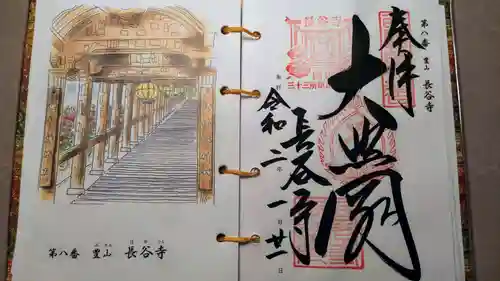 第八番 豊山 長谷寺
ぶさん はせでら
第八番 豊山 長谷寺
奉拝
大悲閣
長谷寺
令和二年一月廿一日